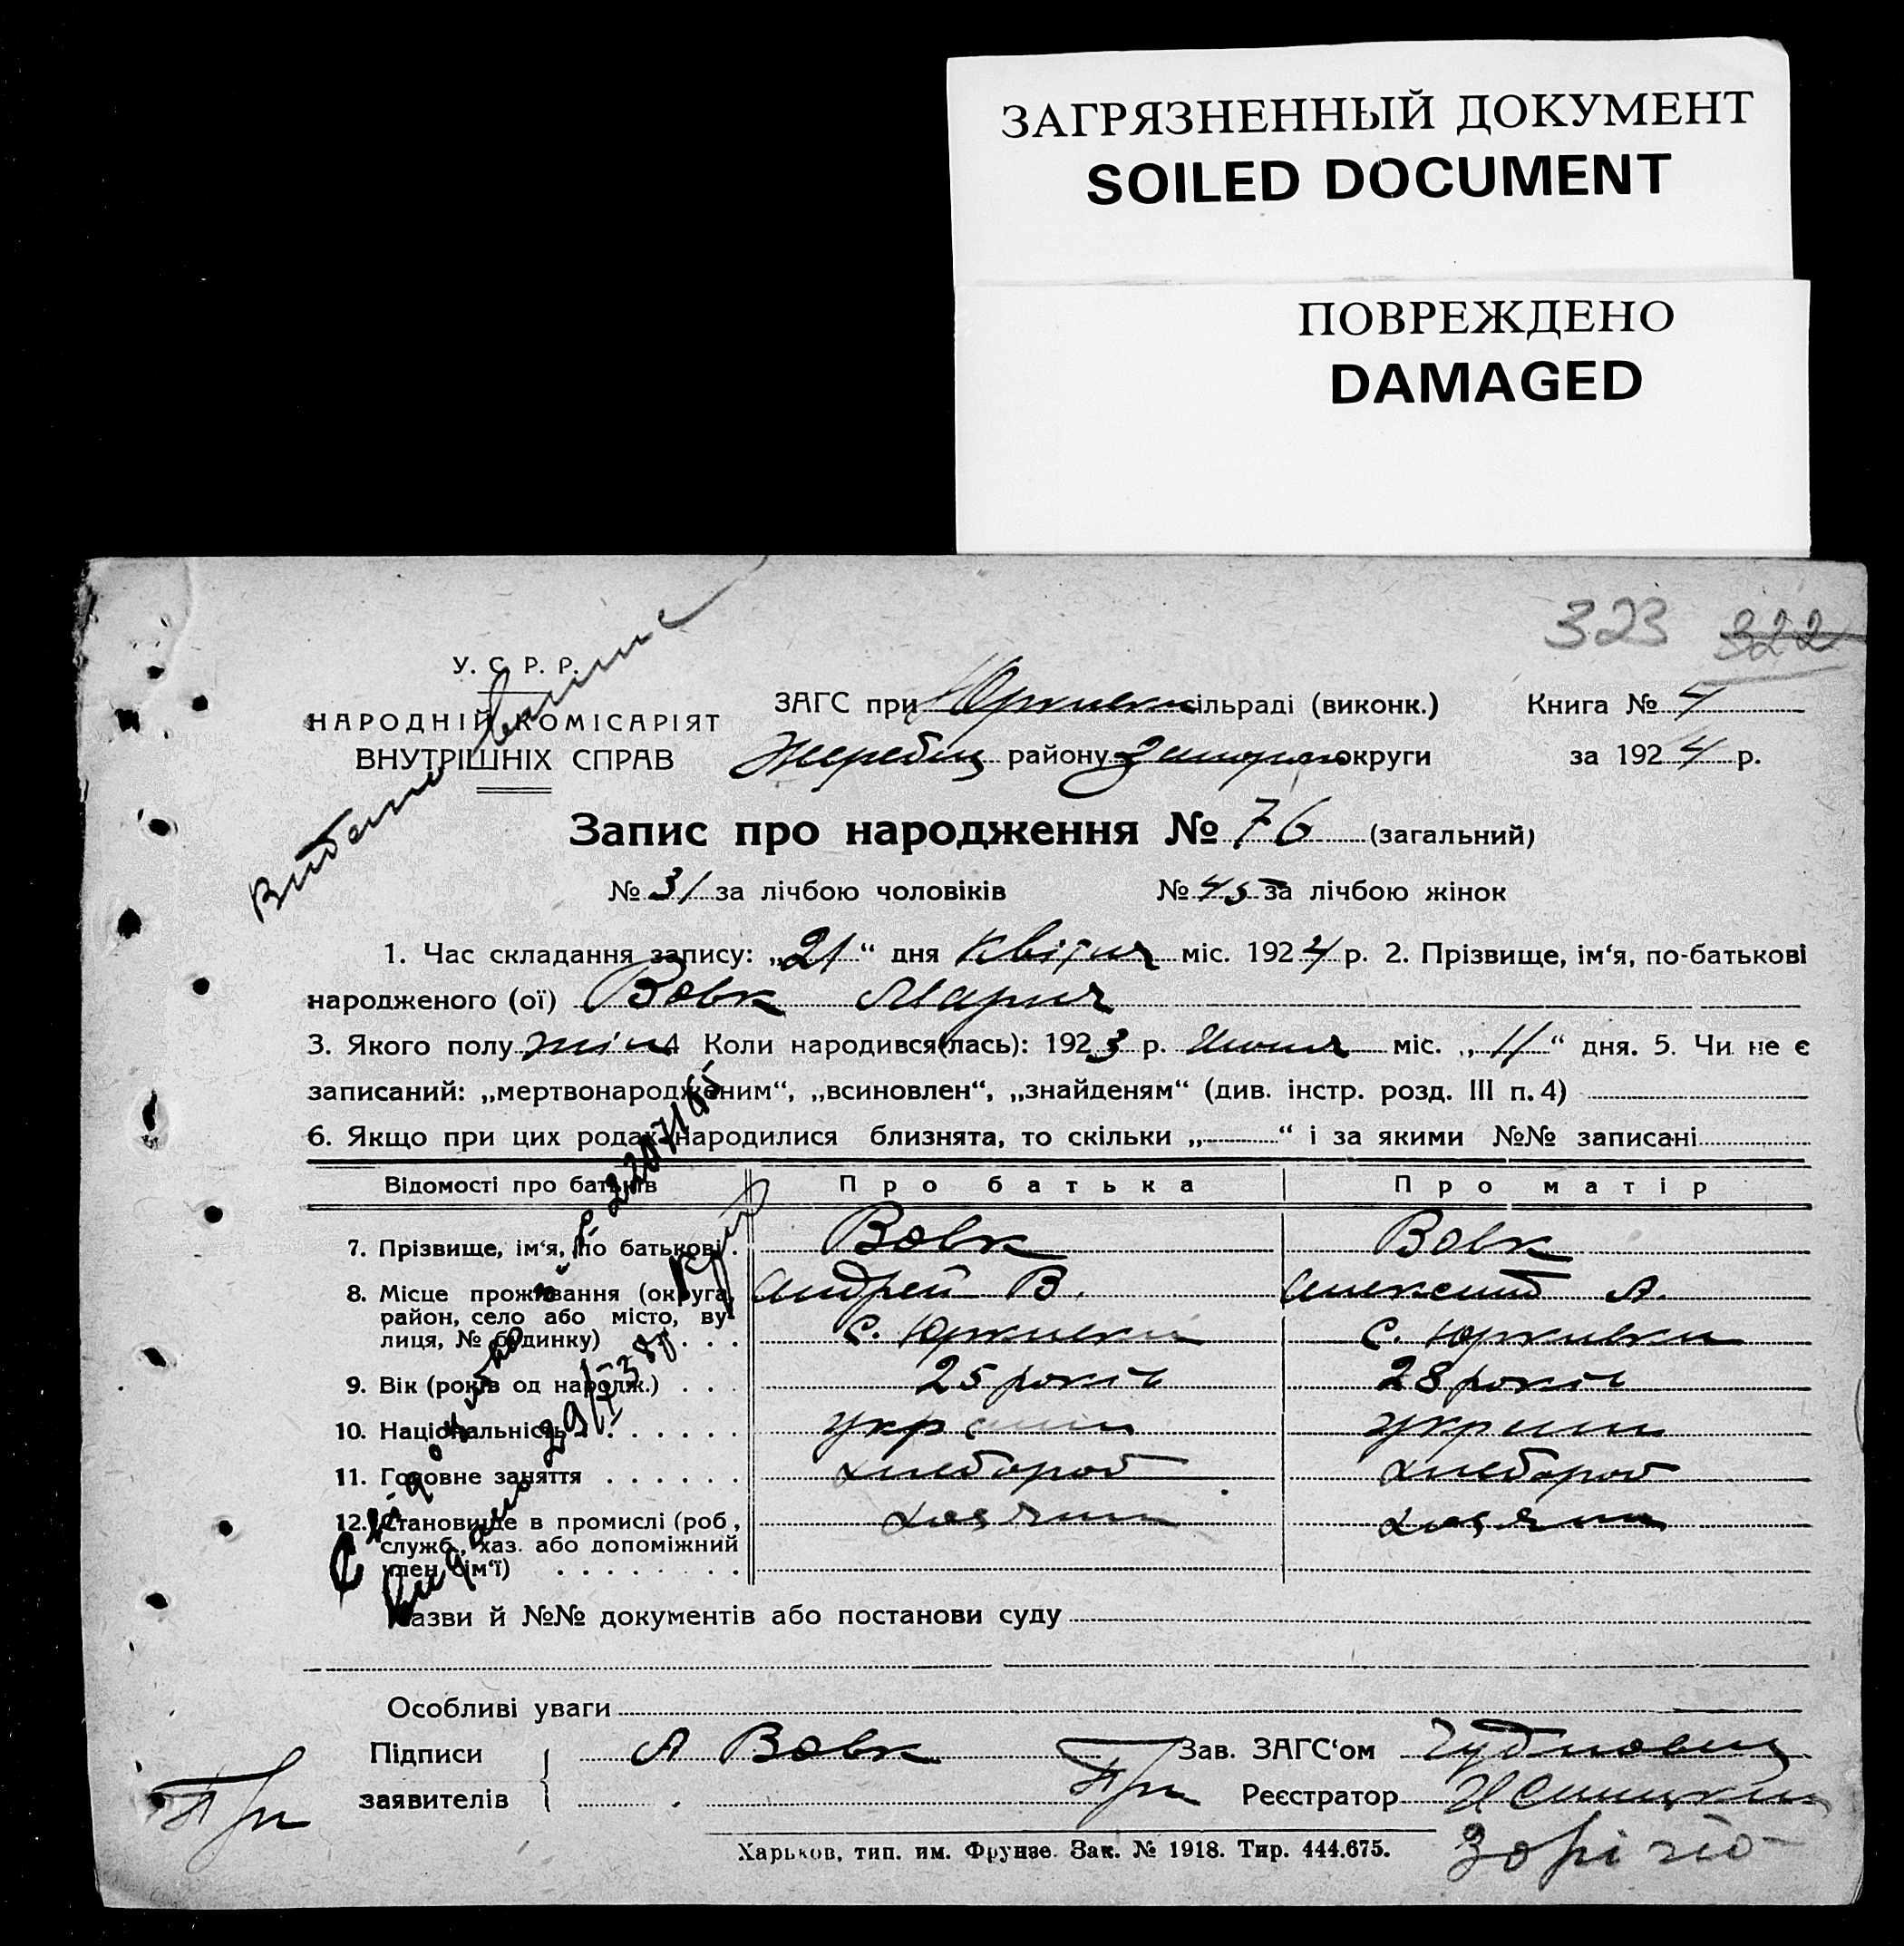 ЗАГРЯЗНЕННЫЙ ДОКУМЕНТ
SOILED DOCUMENT
ПОВРЕЖДЕНО
DAMAGED
323 322
У. С. Р. Р.
НАРОДНІЙ КОМІСАРІЯТ
ВНУТРІШНІХ СПРАВ
ЗАГС при Юркивск сільраді (виконк.) Книга № 4
Жеребец району Запорож округи за 1924 р.
Запис про народження № 76 (загальний)
№ 31 за лічбою чоловіків № 45 за лічбою жінок
1. Час складання запису: „21“ дня Квітня міс. 1924 р. 2. Прізвище, ім‘я, по-батькові
народженого (ої) Вовк Мария
3. Якого полу жін 4 Коли народився(лась): 1923 р. Июня міс. „11“ дня. 5. Чи не є
записаний: „мертвонародженим“, „всиновлен“, „знайденям“ (див. інстр. розд. III п. 4)
6. Якщо при цих родах народилися близнята, то скільки „ “ і за якими №№ записані
Відомості про батьків Про батька Про матір
7. Прізвище, ім‘я, по батькові Вовк Вовк
8. Місце проживання (округа, Андрей В. Александ А.
район, село або місто, ву-
лиця, № будинку) с. Юркивка с. Юркивка
9. Вік (років од народж.) 25 років 28 років
10. Національність украин украин
11. Головне заняття хлебороб хлебороб
12. Становище в промислі (роб., хозяин хозяин
служб., хаз. або допоміжний
член сім‘ї)
Назви й №№ документів або постанови суду
Особливі уваги
Підписи А Вовк Зав. ЗАГС‘ом
заявителів Реєстратор
Харьков, тип. им. Фрунзе. Зак. № 1918. Тир. 444.675.